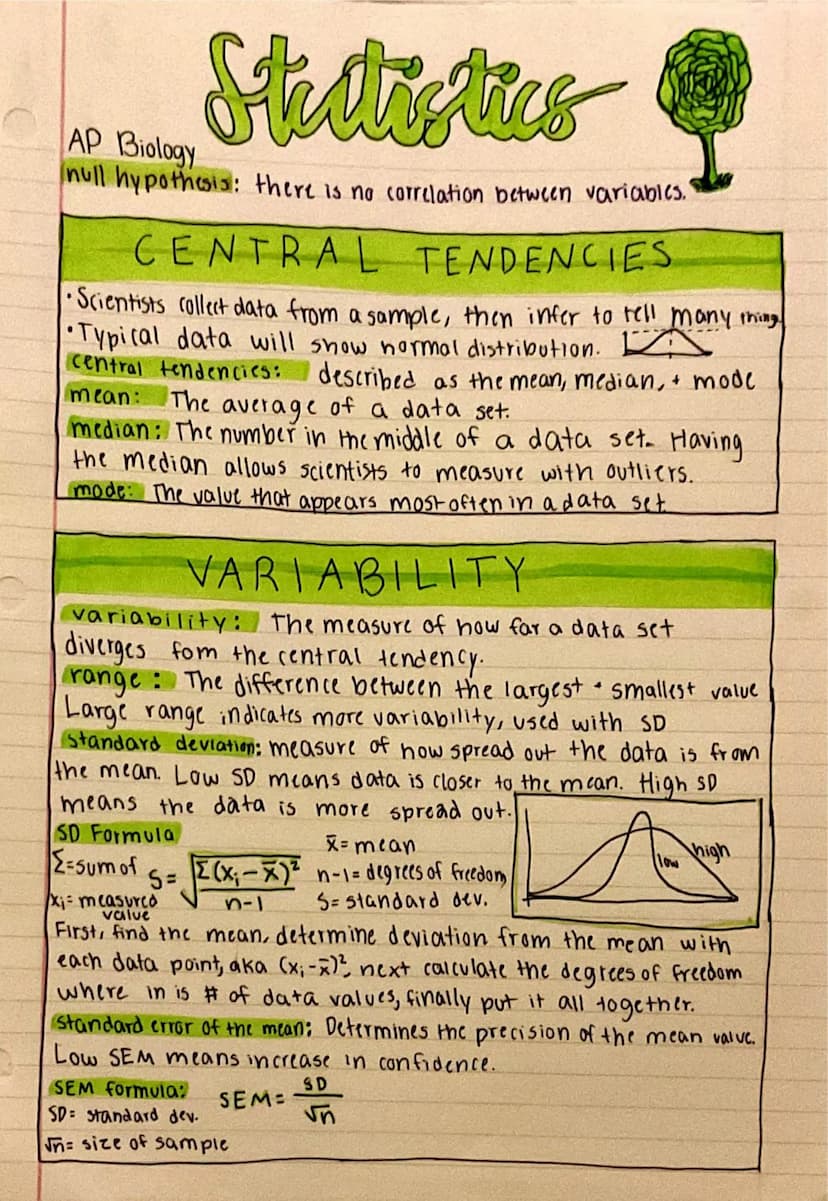 Statistics
AP Biology
null hypothesis: there is no correlation between variables.
CENTRAL TENDENCIES
• Scientists collect data from a sample, then infer to tell many thing
• Typical data will show normal distribution.
central tendencies: described as the mean, median, + mode
mean: The average of a data set.
median: The number in the middle of a data set. Having
the median allows scientists to measure with outliers.
mode: The value that appears most often in a data set
VARIABILITY
variability: The measure of how far a data set
diverges fom the central tendency.
range: The difference between the largest + smallest value
Large range indicates more variability, used with SD
standard deviation: measure of how spread out the data is from
the mean. Low SD means data is closer to the mean. High SD
means the data is more spread out.
SD Formula
x̄ = mean
Σ=sum of
S= √Σ(xᵢ-x̄)²/n-1
n-1= degrees of freedom
xᵢ= measured
value
S= standard dev.
low
high
First, find the mean, determine deviation from the mean with
each data point, aka (xᵢ-x̄)², next calculate the degrees of freedom
where in is # of data values, finally put it all together.
standard error of the mean: Determines the precision of the mean value.
Low SEM means increase in confidence.
SEM formula:
SEM= SD/√n
SD= standard dev.
√n= size of sample